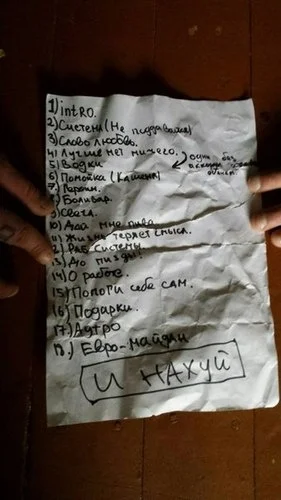 1) intRO.
2) Система (Не поддавайся)
3) Слово любовь.
4) Лучше нет ничего.
5) Водки
6) Помойка (Кашель)
7) Героин.
8) Боливар.
9) Света.
10) Дай мне пива
11) Жизнь теряет смысл.
12) Раб системы
13) До пизды!
14) О работе.
15) Помоги себе сам.
16) Подарки.
17) Аутро
18.) Евро-майдан
И НАХУЙ